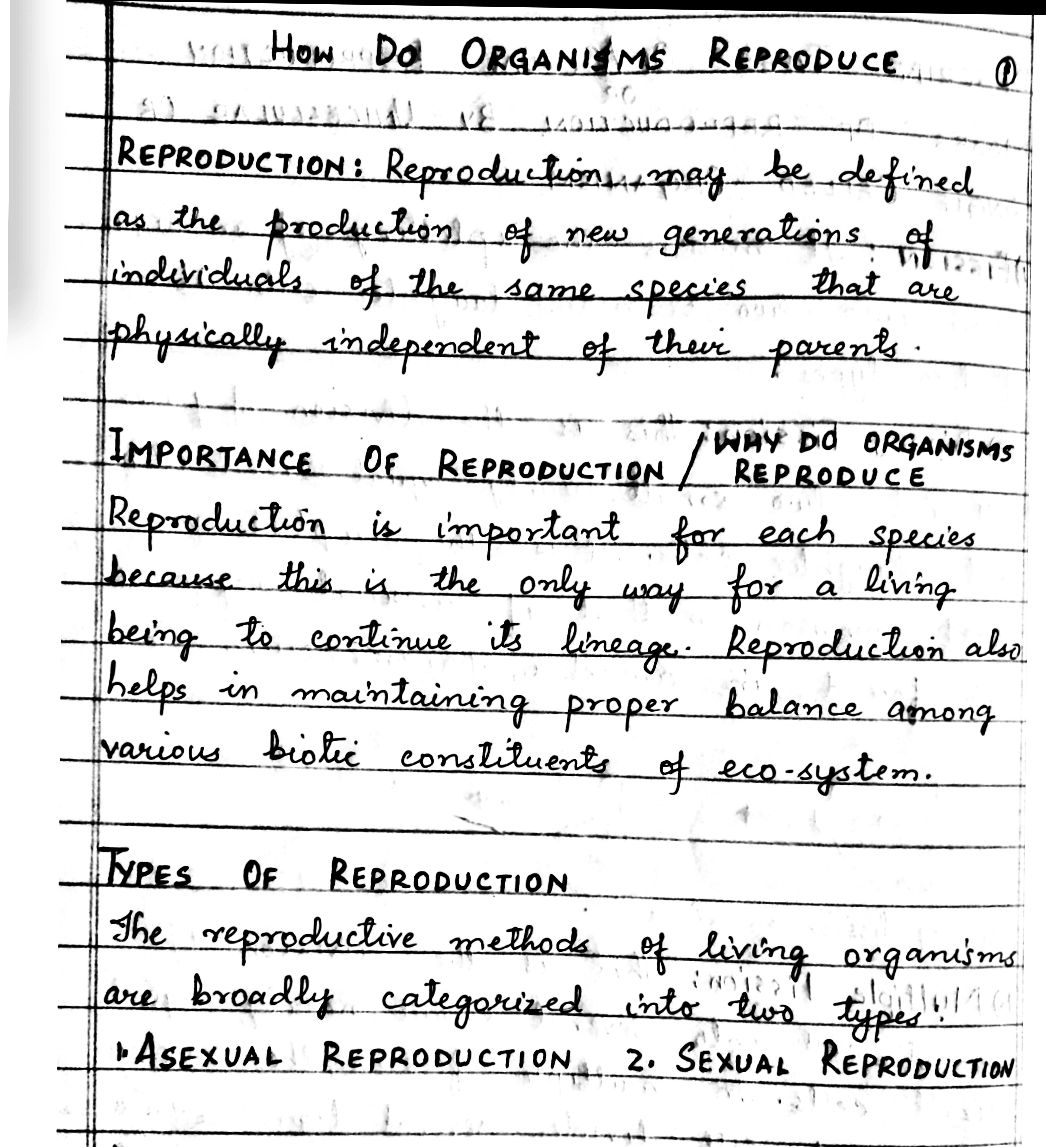 HOW DO ORGANISMS REPRODUCE ①
REPRODUCTION: Reproduction may be defined
as the production of new generations of
individuals of the same species that are
physically independent of their parents.
IMPORTANCE OF REPRODUCTION / WHY DO ORGANISMS
REPRODUCE
Reproduction is important for each species
because this is the only way for a living
being to continue its lineage. Reproduction also
helps in maintaining proper balance among
various biotic constituents of eco-system.
TYPES OF REPRODUCTION
The reproductive methods of living organisms
are broadly categorized into two types:
1. ASEXUAL REPRODUCTION 2. SEXUAL REPRODUCTION